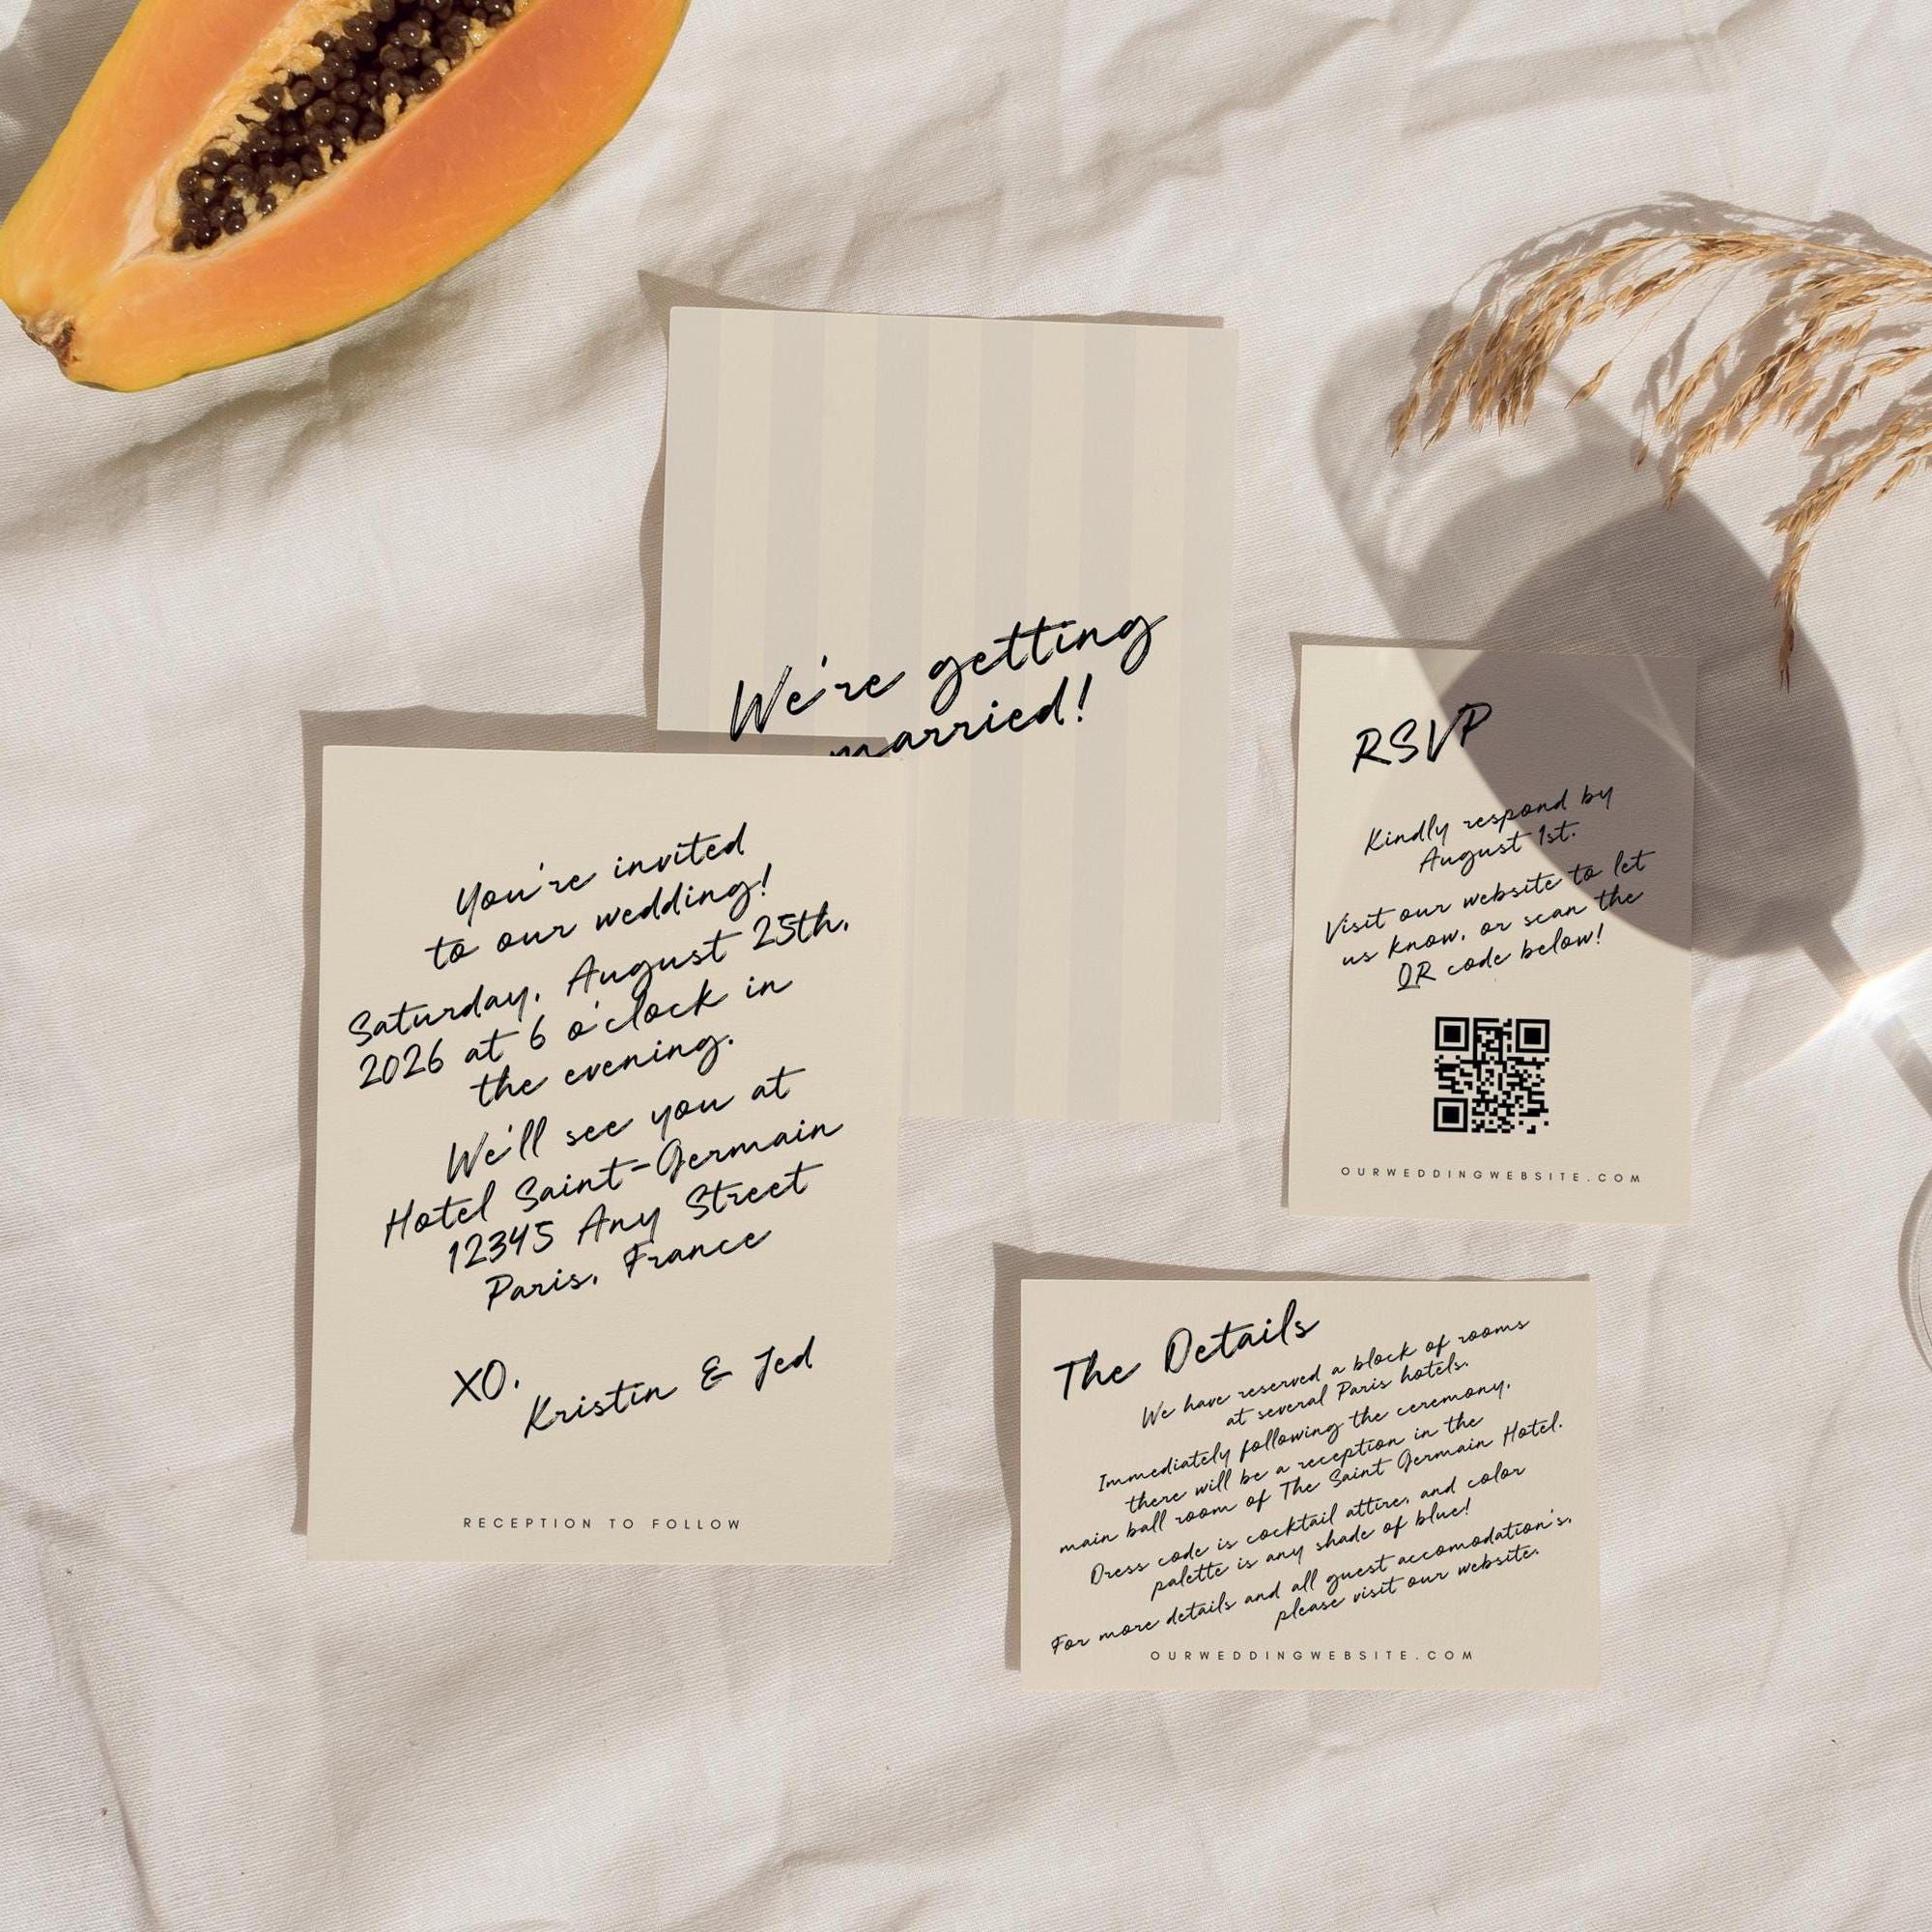 We're getting
married!
You're invited
to our wedding!
Saturday, August 25th,
2026 at 6 o'clock in
the evening.
We'll see you at
Hotel Saint-Germain
12345 Any Street
Paris, France
XO,
Kristin & Jed
RECEPTION TO FOLLOW
RSVP
Kindly respond by
August 1st.
Visit our website to let
us know, or scan the
QR code below!
OURWEDDINGWEBSITE.COM
The Details
We have reserved a block of rooms
at several Paris hotels.
Immediately following the ceremony,
there will be a reception in the
main ball room of The Saint Germain Hotel.
Dress code is cocktail attire, and color
palette is any shade of blue!
For more details and all guest accomodation's,
please visit our website.
OURWEDDINGWEBSITE.COM